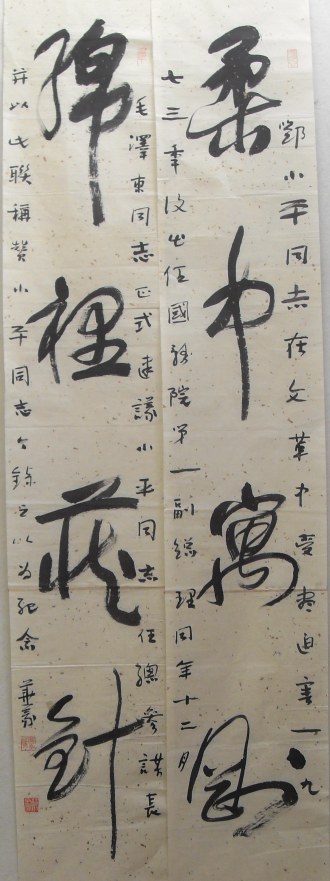 鄧小平同志在文革中受盡迫害一九
柔中寓剛
七三年復出任國務院第一副總理同年十二月
毛澤東同志正式建議小平同志任總參謀長
綿裡藏針
并以此聯稱贊小平同志今錄之以為紀念